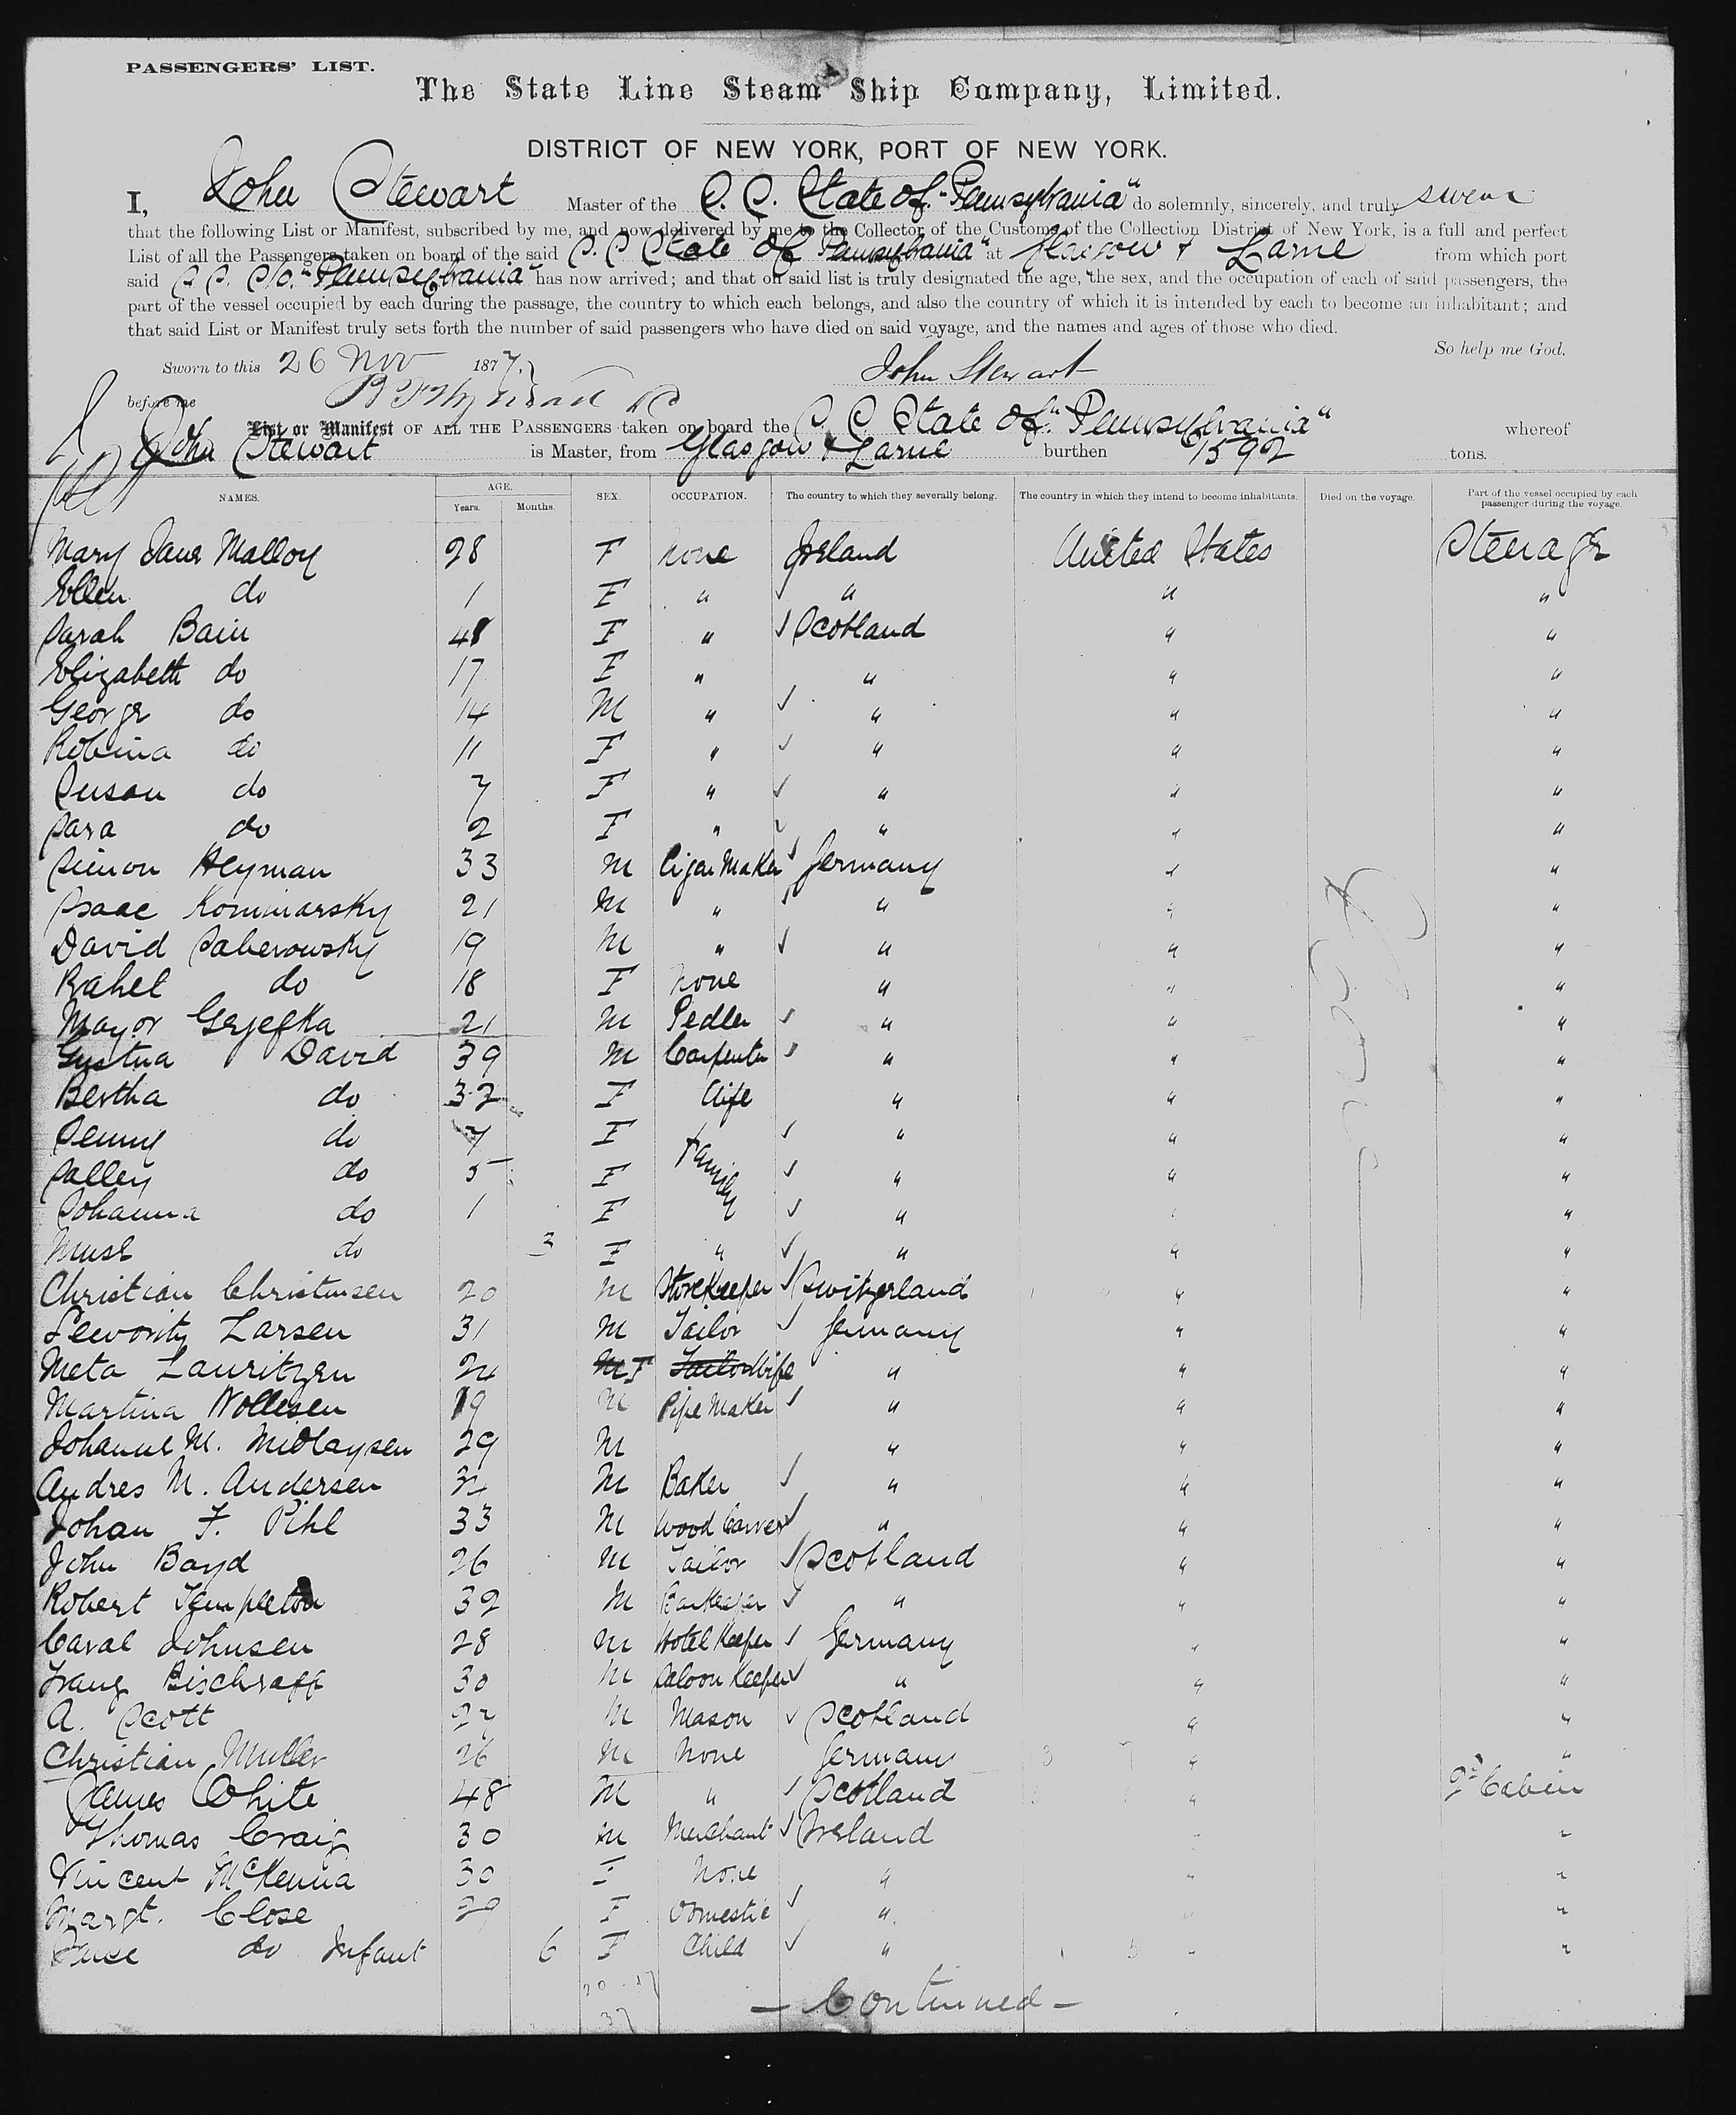 PASSENGERS' LIST.
The State Line Steam Ship Company, Limited.
DISTRICT OF NEW YORK, PORT OF NEW YORK.
I, John Stewart Master of the S. S. State of "Pennsylvania" do solemnly, sincerely, and truly swear
that the following List or Manifest, subscribed by me, and now delivered by me to the Collector of the Customs of the Collection District of New York, is a full and perfect
List of all the Passengers taken on board of the said S. S. State of Pennsylvania" at Glasgow & Larne from which port
said S S. St o. "Pennsylvania" has now arrived; and that on said list is truly designated the age, the sex, and the occupation of each of said passengers, the
part of the vessel occupied by each during the passage, the country to which each belongs, and also the country of which it is intended by each to become an inhabitant; and
that said List or Manifest truly sets forth the number of said passengers who have died on said voyage, and the names and ages of those who died.
So help me God.
Sworn to this 26 Nov 1877.
John Stewart
before me
List or Manifest OF ALL THE PASSENGERS taken on board the S. S. State of "Pennsylvania" whereof
John Stewart is Master, from Glasgow & Larne burthen 1592 tons.
NAMES. AGE. Years. Months. SEX. OCCUPATION. The country to which they severally belong. The country in which they intend to become inhabitants. Died on the voyage. Part of the vessel occupied by each passenger during the voyage.
Mary Jane Malloy 28 F none Ireland United States Steerage
Ellen do 1 F " " " "
Sarah Bain 48 F " Scotland " "
Elizabeth do 17 F " " " "
George do 14 M " " " "
Robina do 11 F " " " "
Susan do 7 F " " " "
Sara do 2 F " " " "
Simon Heyman 33 M Cigar Maker Germany " "
Isaac Kominarsky 21 M " " " "
David Saberowsky 19 M " " " "
Rahel do 18 F none " " "
Mayor Gryefka 21 M Pedler " " "
Gustua David 39 M Carpenter " " "
Bertha do 32 F Wife " " "
Jenny do 7 F Family " " "
Salley do 5 F " " "
Johanna do 1 F " " "
Muse do 3 F " " " "
Christian Christensen 20 M Storekeeper Switzerland " "
Larsen 31 M Tailor Germany " "
Meta Lauritzen 24 M F Tailor Wife " " "
Martina Nollesen 19 M Pipe Maker " " "
Johanne M. Midlaysen 29 M " " "
Andres M. Andersen M Baker " " "
Johan F. Pihl 33 M Wood Carver " " "
John Boyd 26 M Tailor Scotland " "
Robert Templeton 32 M Barkeeper " " "
Caral Johnsen 28 M Hotel Keeper Germany " "
Franz Bischraff 30 M Saloon Keeper " " "
A. Scott 27 M Mason Scotland " "
Christian Muller 26 M None Germany " "
James White 48 M " Scotland " 2d Cabin
Thomas Craig 30 M Merchant Ireland " "
Vincent McKenna 30 F None " " "
Margt. Close 29 F Domestic " " "
do Infant 6 F Child " " "
20 17
37
- Continued -